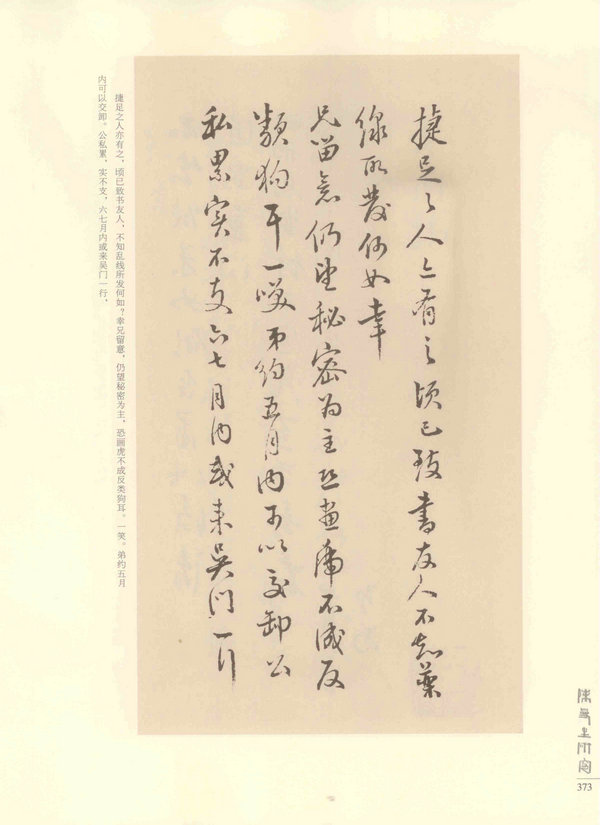 捷足之人亦有之顷已致书友人不知药
线所发何如幸
兄留意仍望秘密为主恐画虎不成反
类狗耳一噗弟约五月内可以交卸公
私累实不支六七月内或来吴门一行
捷足之人亦有之，顷已致书友人，不知乱线所发何如？幸兄留意，仍望秘密为主，恐画虎不成反类狗耳。一笑。弟约五月
内可以交卸。公私累，实不支，六七月内或来吴门一行，
373